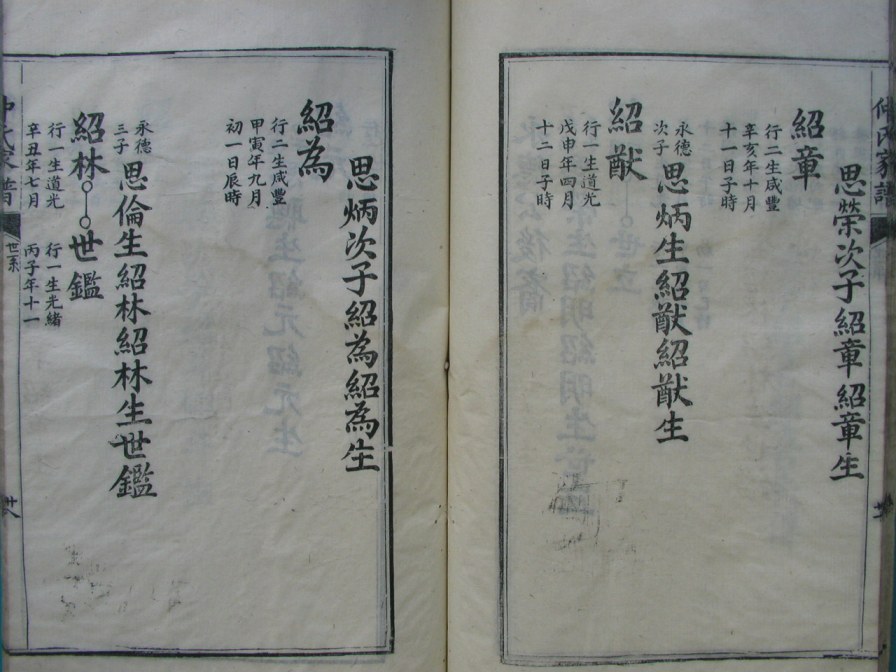 思榮次子紹章紹章生
紹章
行二生咸豐
辛亥年十月
十一日子時
永德
次子
思炳生紹猷紹猷生
紹猷
行一生道光
戊申年四月
十二日子時
思炳次子紹為紹為生
紹為
行二生咸豐
甲寅年九月
初一日辰時
永德
三子
思倫生紹林紹林生世鑑
紹林 世鑑
行一生道光
辛丑年七月
行一生光緒
丙子年十一
氏家譜
世系